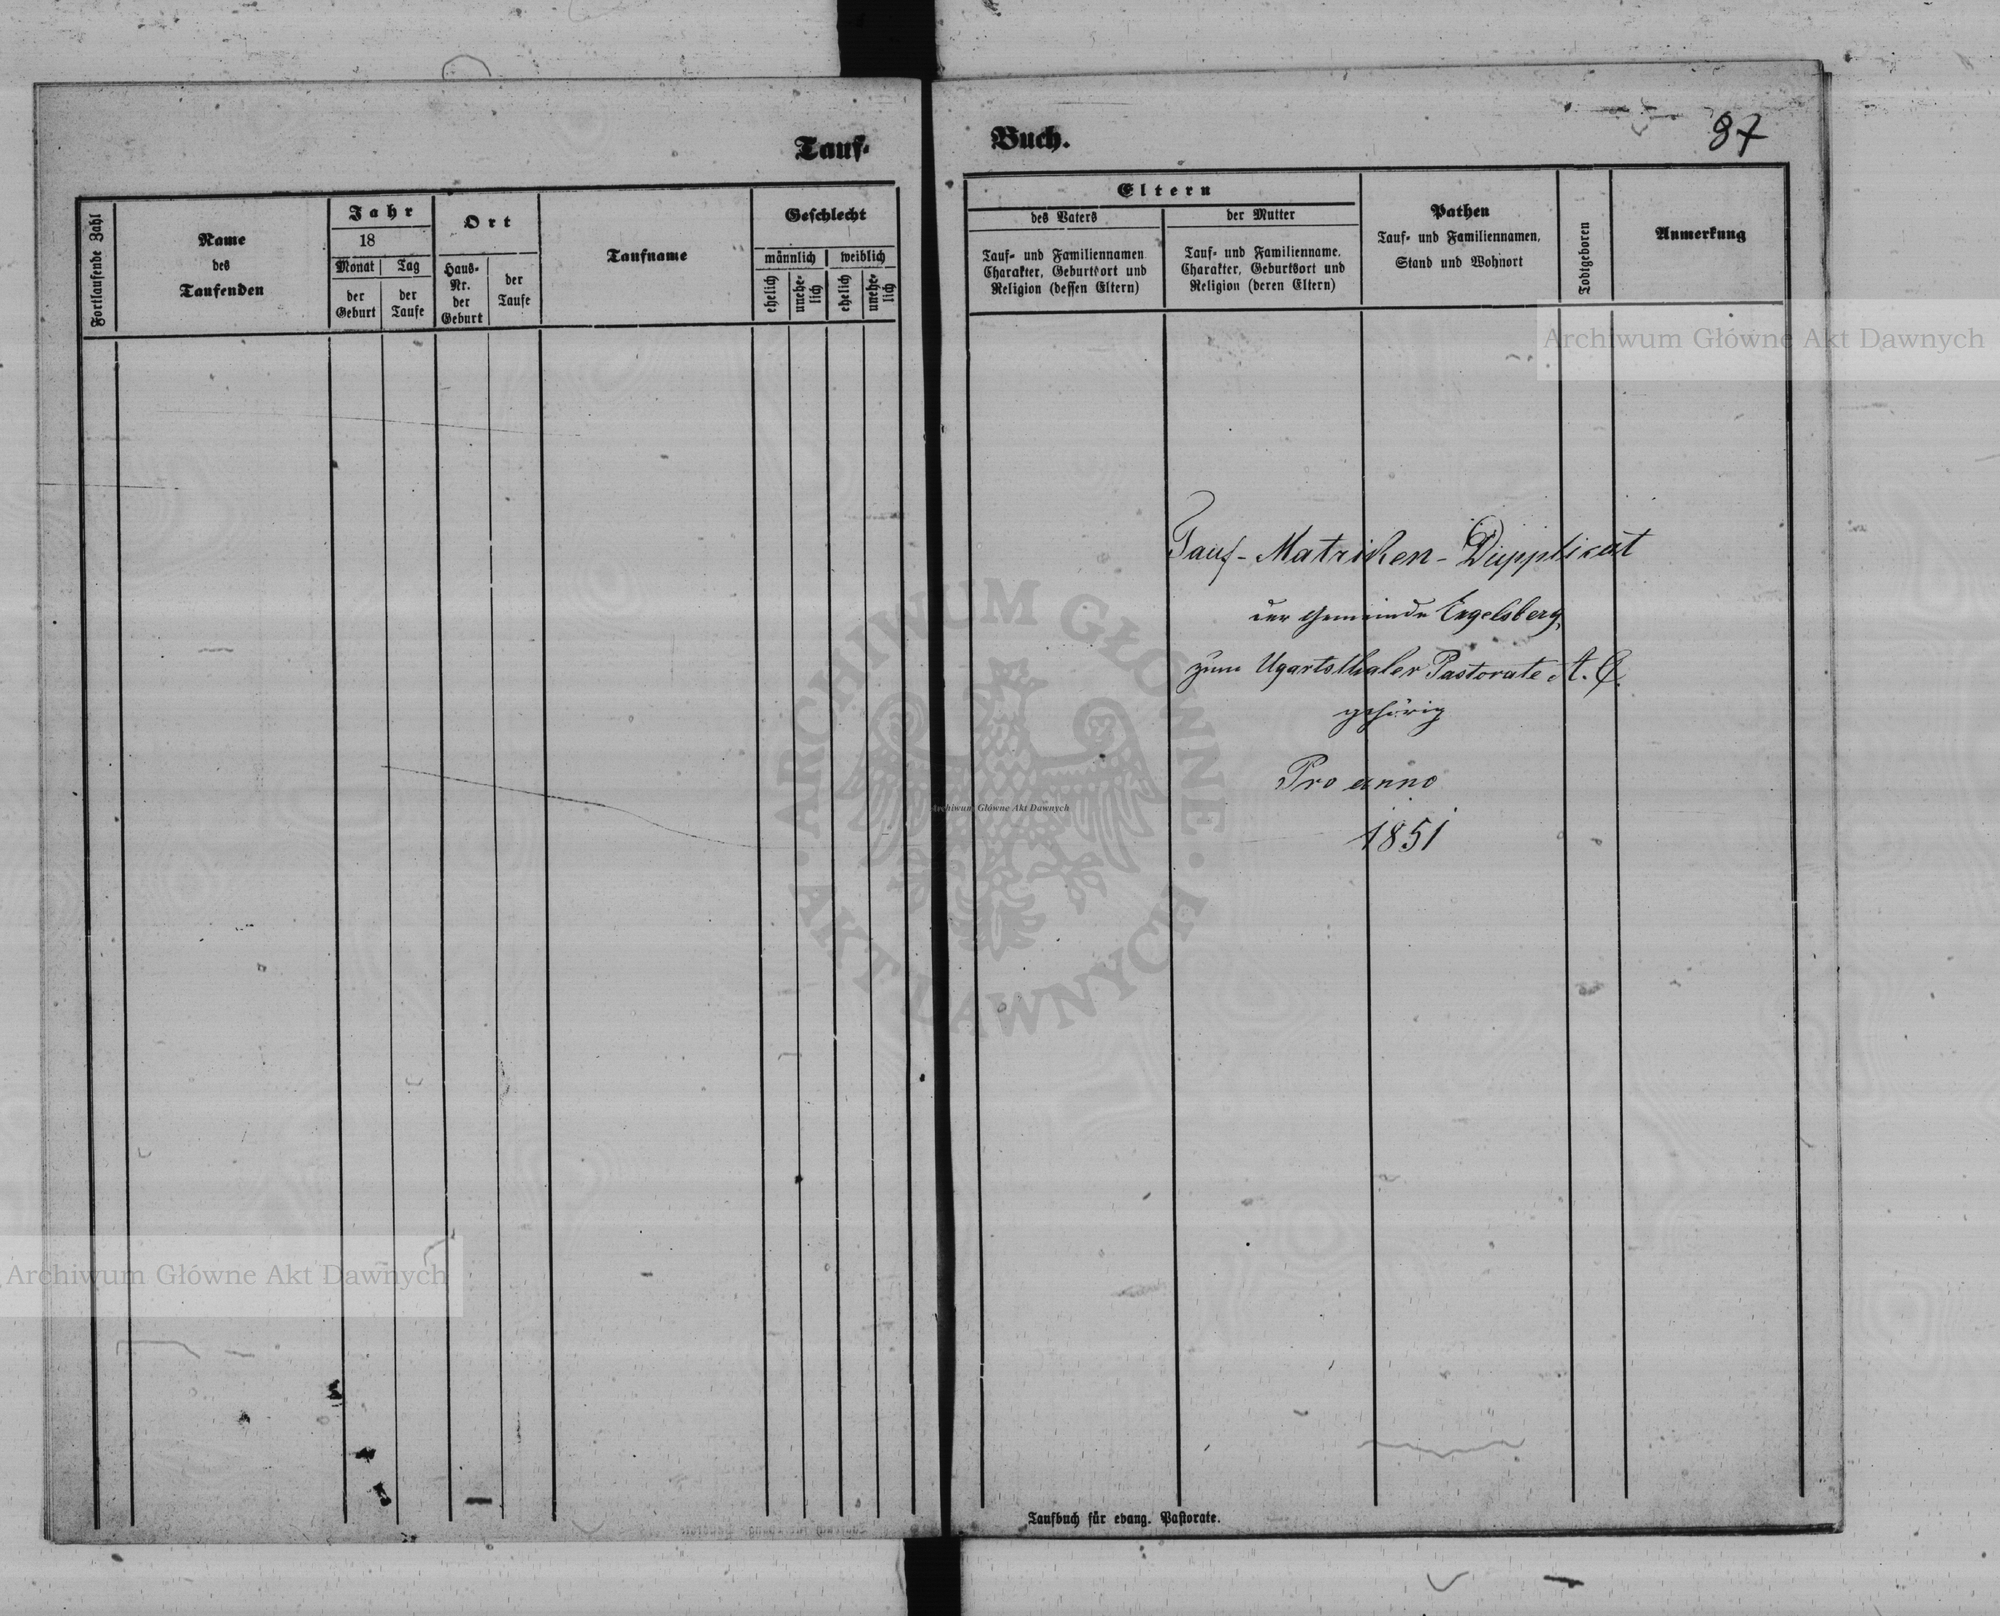 Tauf-
Fortlaufende Zahl
Name
des
Taufenden
Jahr
18
Monat
Tag
der
Geburt
der
Taufe
Ort
Haus-
Nr.
der
Geburt
der
Taufe
Taufname
Geschlecht
männlich
weiblich
ehelich
unehe-
lich
ehelich
unehe-
lich
Buch.
87
Eltern
des Vaters
der Mutter
Tauf- und Familiennamen
Charakter, Geburtsort und
Religion (dessen Eltern)
Tauf- und Familienname,
Charakter, Geburtsort und
Religion (deren Eltern)
Pathen
Tauf- und Familiennamen,
Stand und Wohnort
Todtgeboren
Anmerkung
Archiwum Główne Akt Dawnych
Tauf-Matriken-Dupplicat
der Gemeinde Engelsberg,
zum Ugartsthaler Pastorate A. C.
gehörig
Pro anno
1851
ARCHIWUM GŁÓWNE
Archiwum Główne Akt Dawnych
AKT DAWNYCH
Archiwum Główne Akt Dawnych
Taufbuch für evang. Pastorate.